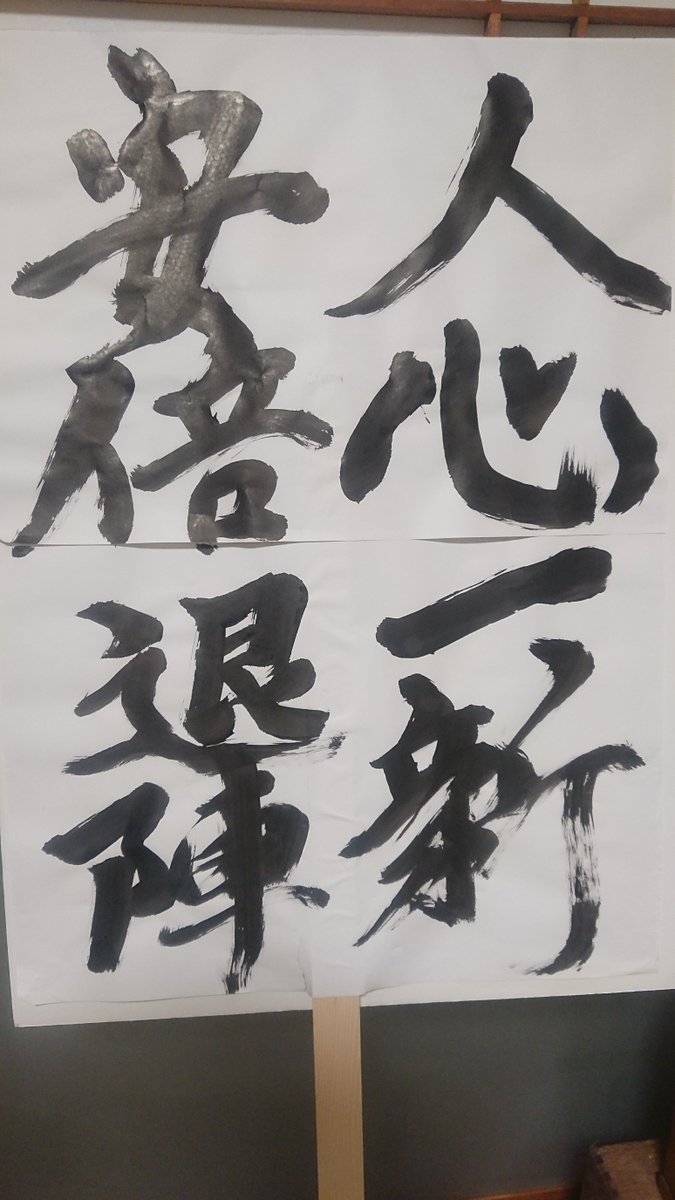 人心一新
安倍退陣